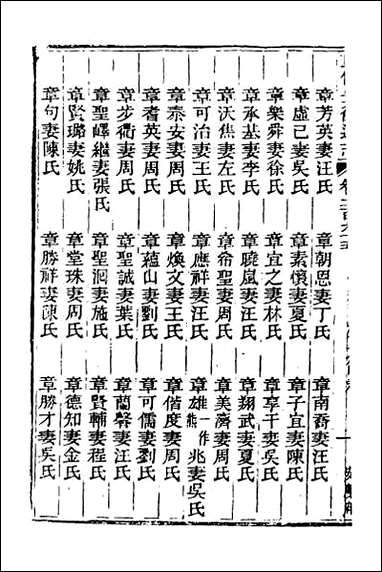 章芳英妻汪氏 章朝恩妻丁氏 章南喬妻汪氏
章虛已妻吳氏 章素懷妻夏氏 章子宜妻陳氏
章樂舜妻徐氏 章宜之妻林氏 章享干妻吳氏
章承基妻李氏 章曉嵐妻汪氏 章翔武妻夏氏
章沃焦妻左氏 章俞聖妻周氏 章美濟妻周氏
章可治妻王氏 章應祥妻汪氏 章雄一作熊兆妻吳氏
章泰安妻周氏 章煥文妻王氏 章偕度妻周氏
章耆英妻周氏 章蘊山妻劉氏 章可儒妻劉氏
章步衢妻周氏 章聖誠妻葉氏 章蘭馨妻汪氏
章聖嶧繼妻張氏 章聖洄妻施氏 章賢輔妻程氏
章賢璐妻姚氏 章堂珠妻周氏 章德知妻金氏
章句妻陳氏 章勝祥妻陳氏 章勝才妻吳氏